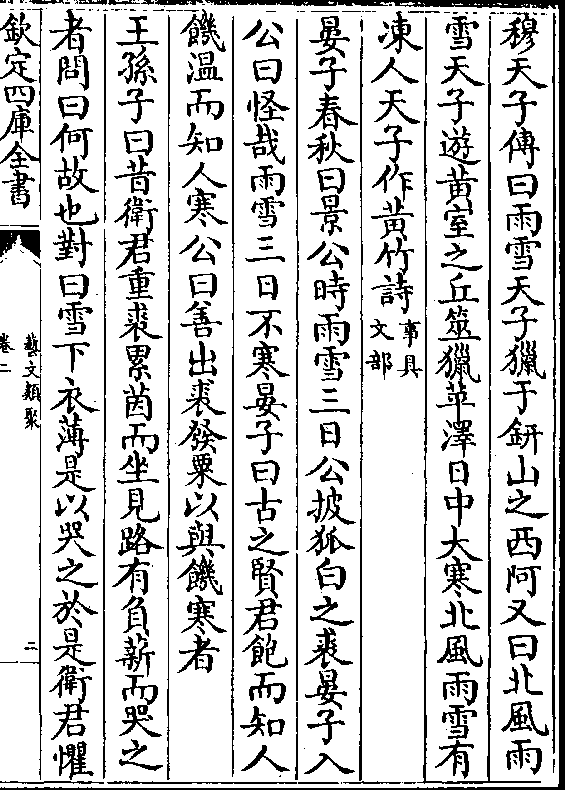 穆天子傳曰雨雪天子獵于鈃山之西阿又曰北風雨
雪天子遊黃室之丘筮獵苹澤日中大寒北風雨雪有
凍人天子作黃竹詩事具
文部
晏子春秋曰景公時雨雪三日公披狐白之裘晏子入
公曰怪哉雨雪三日不寒晏子曰古之賢君飽而知人
饑溫而知人寒公曰善出裘發粟以與饑寒者
王孫子曰昔衛君重裘累茵而坐見路有負薪而哭之
者問曰何故也對曰雪下衣薄是以哭之於是衛君懼
欽定四庫全書
藝文類聚
卷二
二